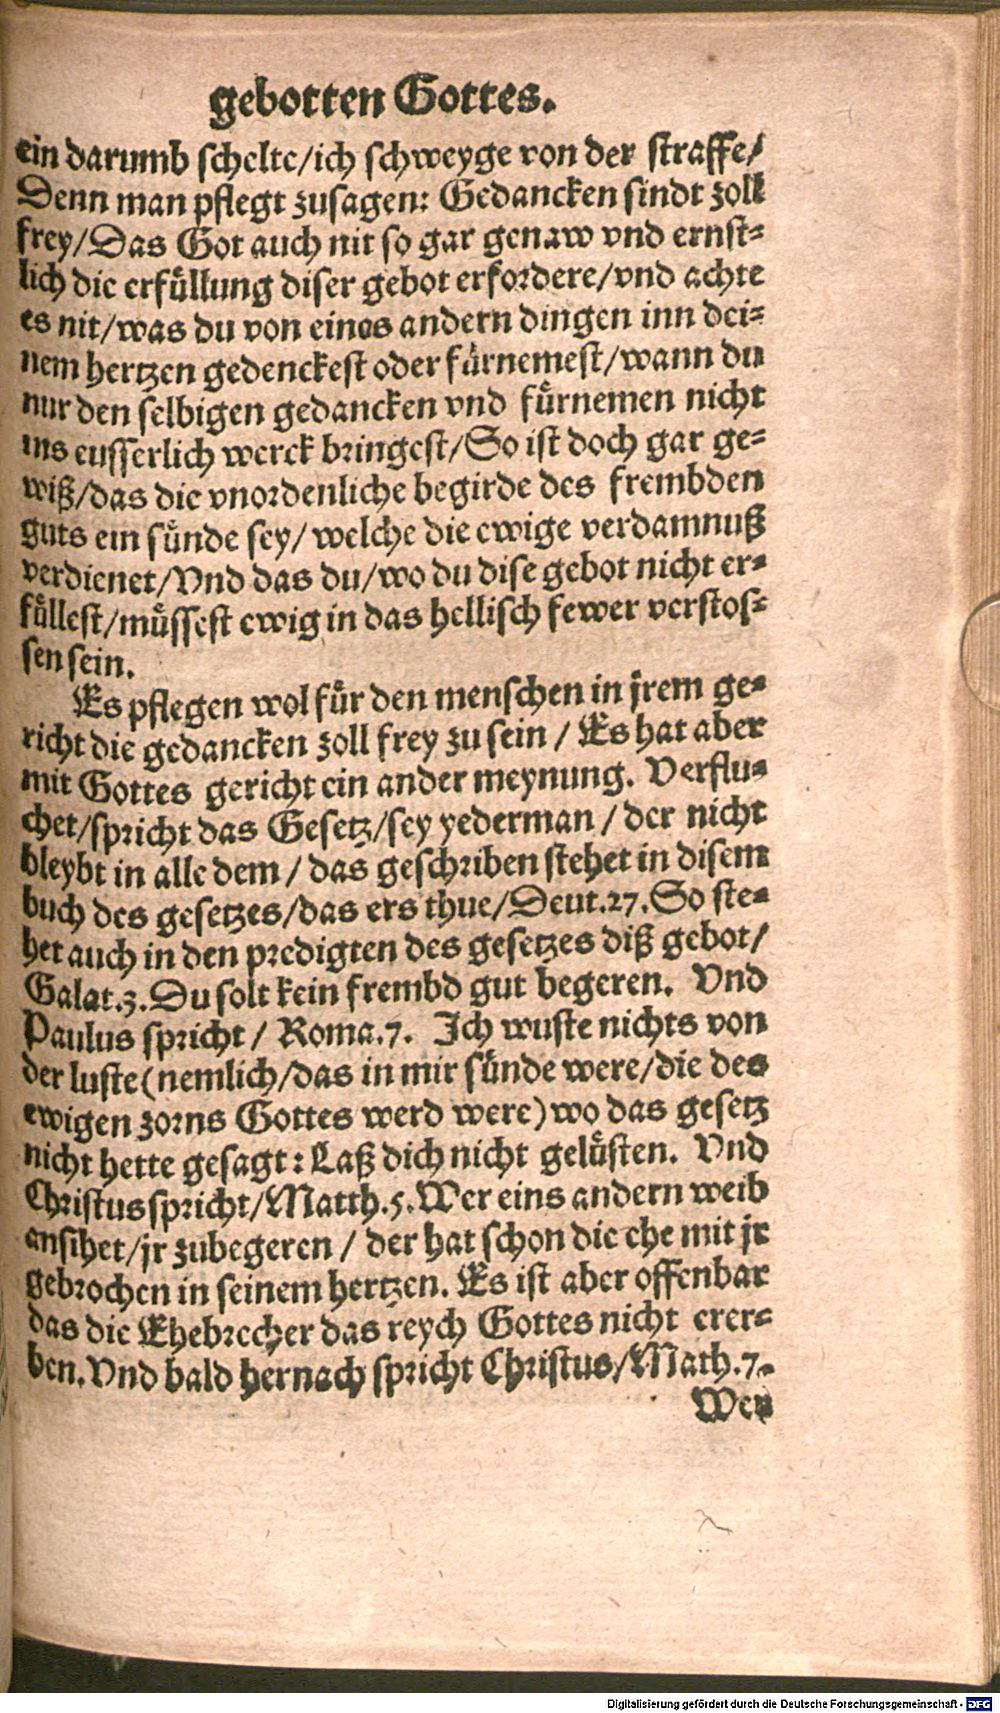 gebotten Gottes.
ein darumb schelte/ich schweyge von der straffe/
Denn man pflegt zusagen: Gedancken sindt zoll
frey/Das Got auch nit so gar genaw vnd ernst⸗
lich die erfuͤllung diser gebot erfordere/vnd achte
es nit/was du von eines andern dingen inn dei⸗
nem hertzen gedenckest oder fuͤrnemest/wann du
nur den selbigen gedancken vnd fuͤrnemen nicht
ins eusserlich werck bringest/So ist doch gar ge⸗
wiß/das die vnordenliche begirde des frembden
guts ein suͤnde sey/ welche die ewige verdamnuß
verdienet/Vnd das du/wo du dise gebot nicht er⸗
fuͤllest/muͤssest ewig in das hellisch fewer verstos⸗
sen sein.
Es pflegen wol fuͤr den menschen in jrem ge⸗
richt die gedancken zoll frey zu sein / Es hat aber
mit Gottes gericht ein ander meynung. Verflu⸗
chet/spricht das Gesetz/sey yederman / der nicht
bleybt in alle dem / das geschriben stehet in disem
buch des gesetzes/das ers thue/Deut.27. So ste⸗
het auch in den predigten des gesetzes diß gebot/
Galat.3. Du solt kein frembd gut begeren. Vnd
Paulus spricht / Roma.7. Ich wuste nichts von
der luste (nemlich/das in mir suͤnde were/die des
ewigen zorns Gottes werd were) wo das gesetz
nicht hette gesagt: Laß dich nicht geluͤsten. Vnd
Christus spricht/Matth.5. Wer eins andern weib
ansihet/jr zubegeren / der hat schon die ehe mit jr
gebrochen in seinem hertzen. Es ist aber offenbar
das die Ehebrecher das reych Gottes nicht erer⸗
ben. Vnd bald hernach spricht Christus/Math.7.
Wey
Digitalisierung gefördert durch die Deutsche Forschungsgemeinschaft - DFG